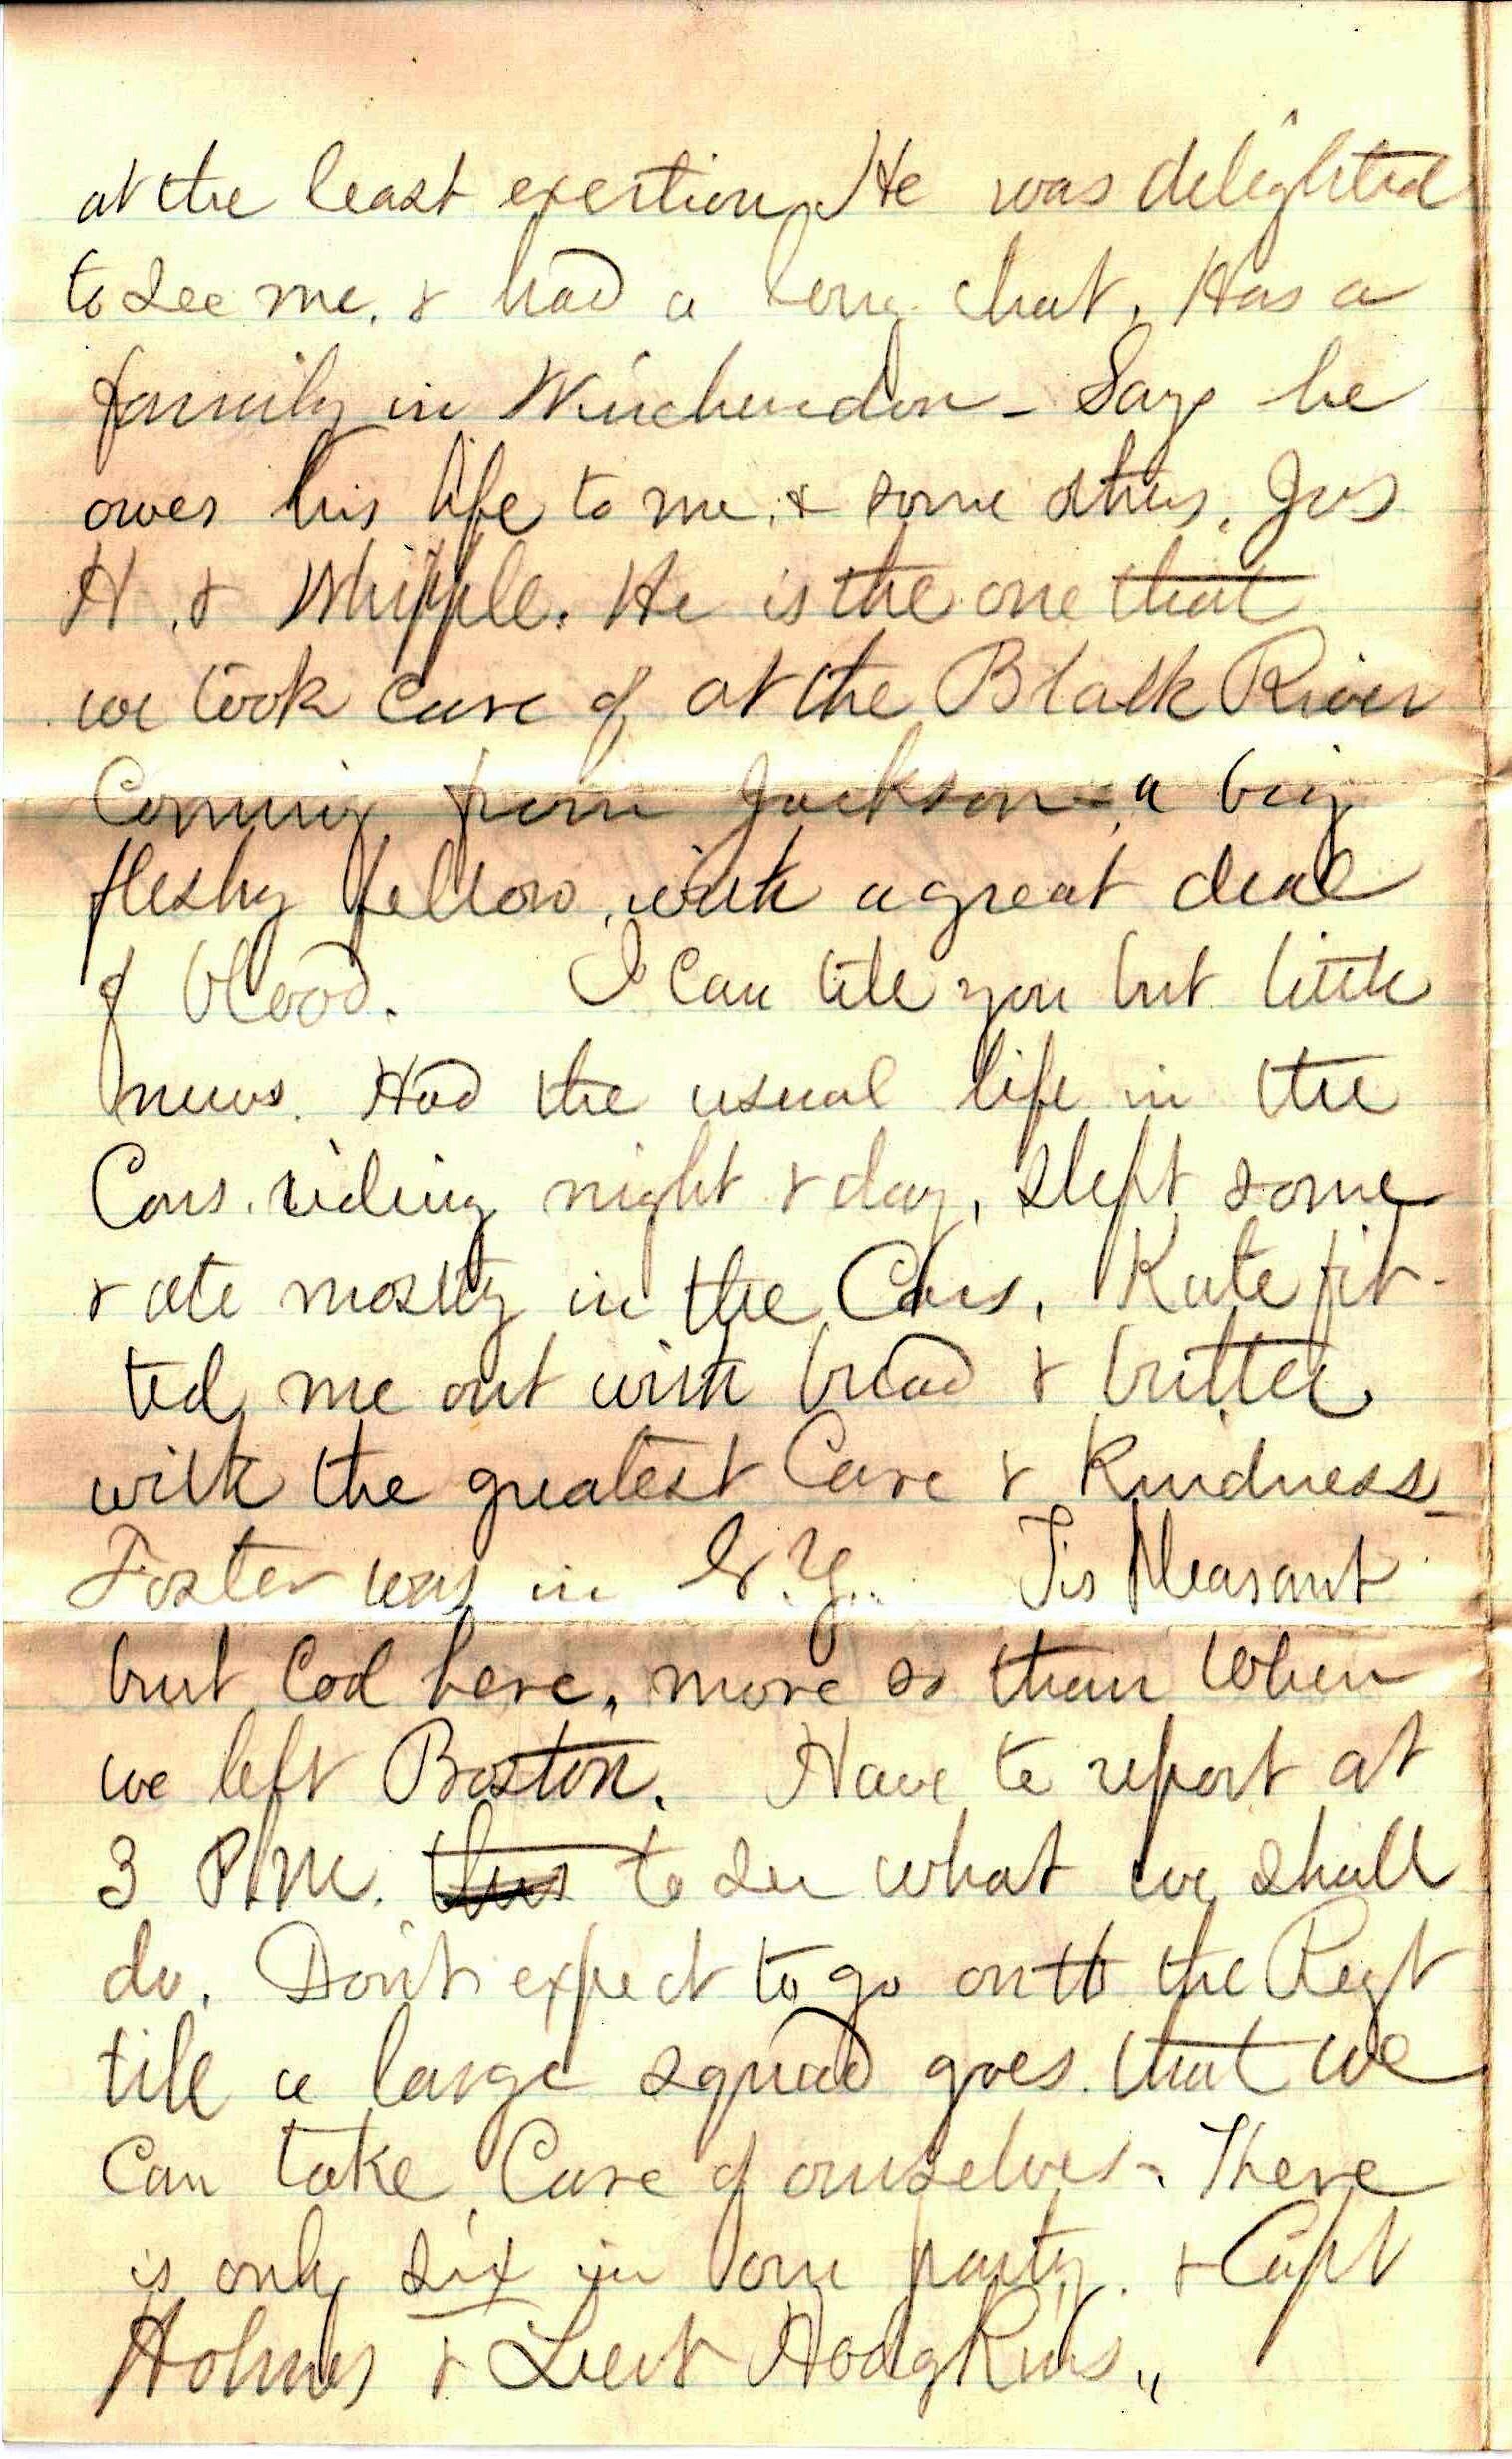 at the least exertion. He was delighted
to see me. & had a long chat. Has a
family in Winchendon - Says he
owes his life to me, & some others. Jos
H. & Whipple. He is the one that
we took care of at the Black River
Coming from Jackson - a big
fleshy fellow, with a great deal
of blood. I can tell you but little
news. Had the usual life in the
Cars. riding night & day, slept some
& ate mostly in the Cars. Kate fit-
ted me out with bread & butter
with the greatest Care & Kindness -
Foster was in N.Y. Tis Pleasant
but Cool here, more so than when
we left Boston. Have to report at
3 P.M. this to see what we shall
do. Don't expect to go on to the Regt
till a large squad goes that we
Can take Care of ourselves - There
is only six in our party. & Capt
Holmes & Lieut Hodgkins"